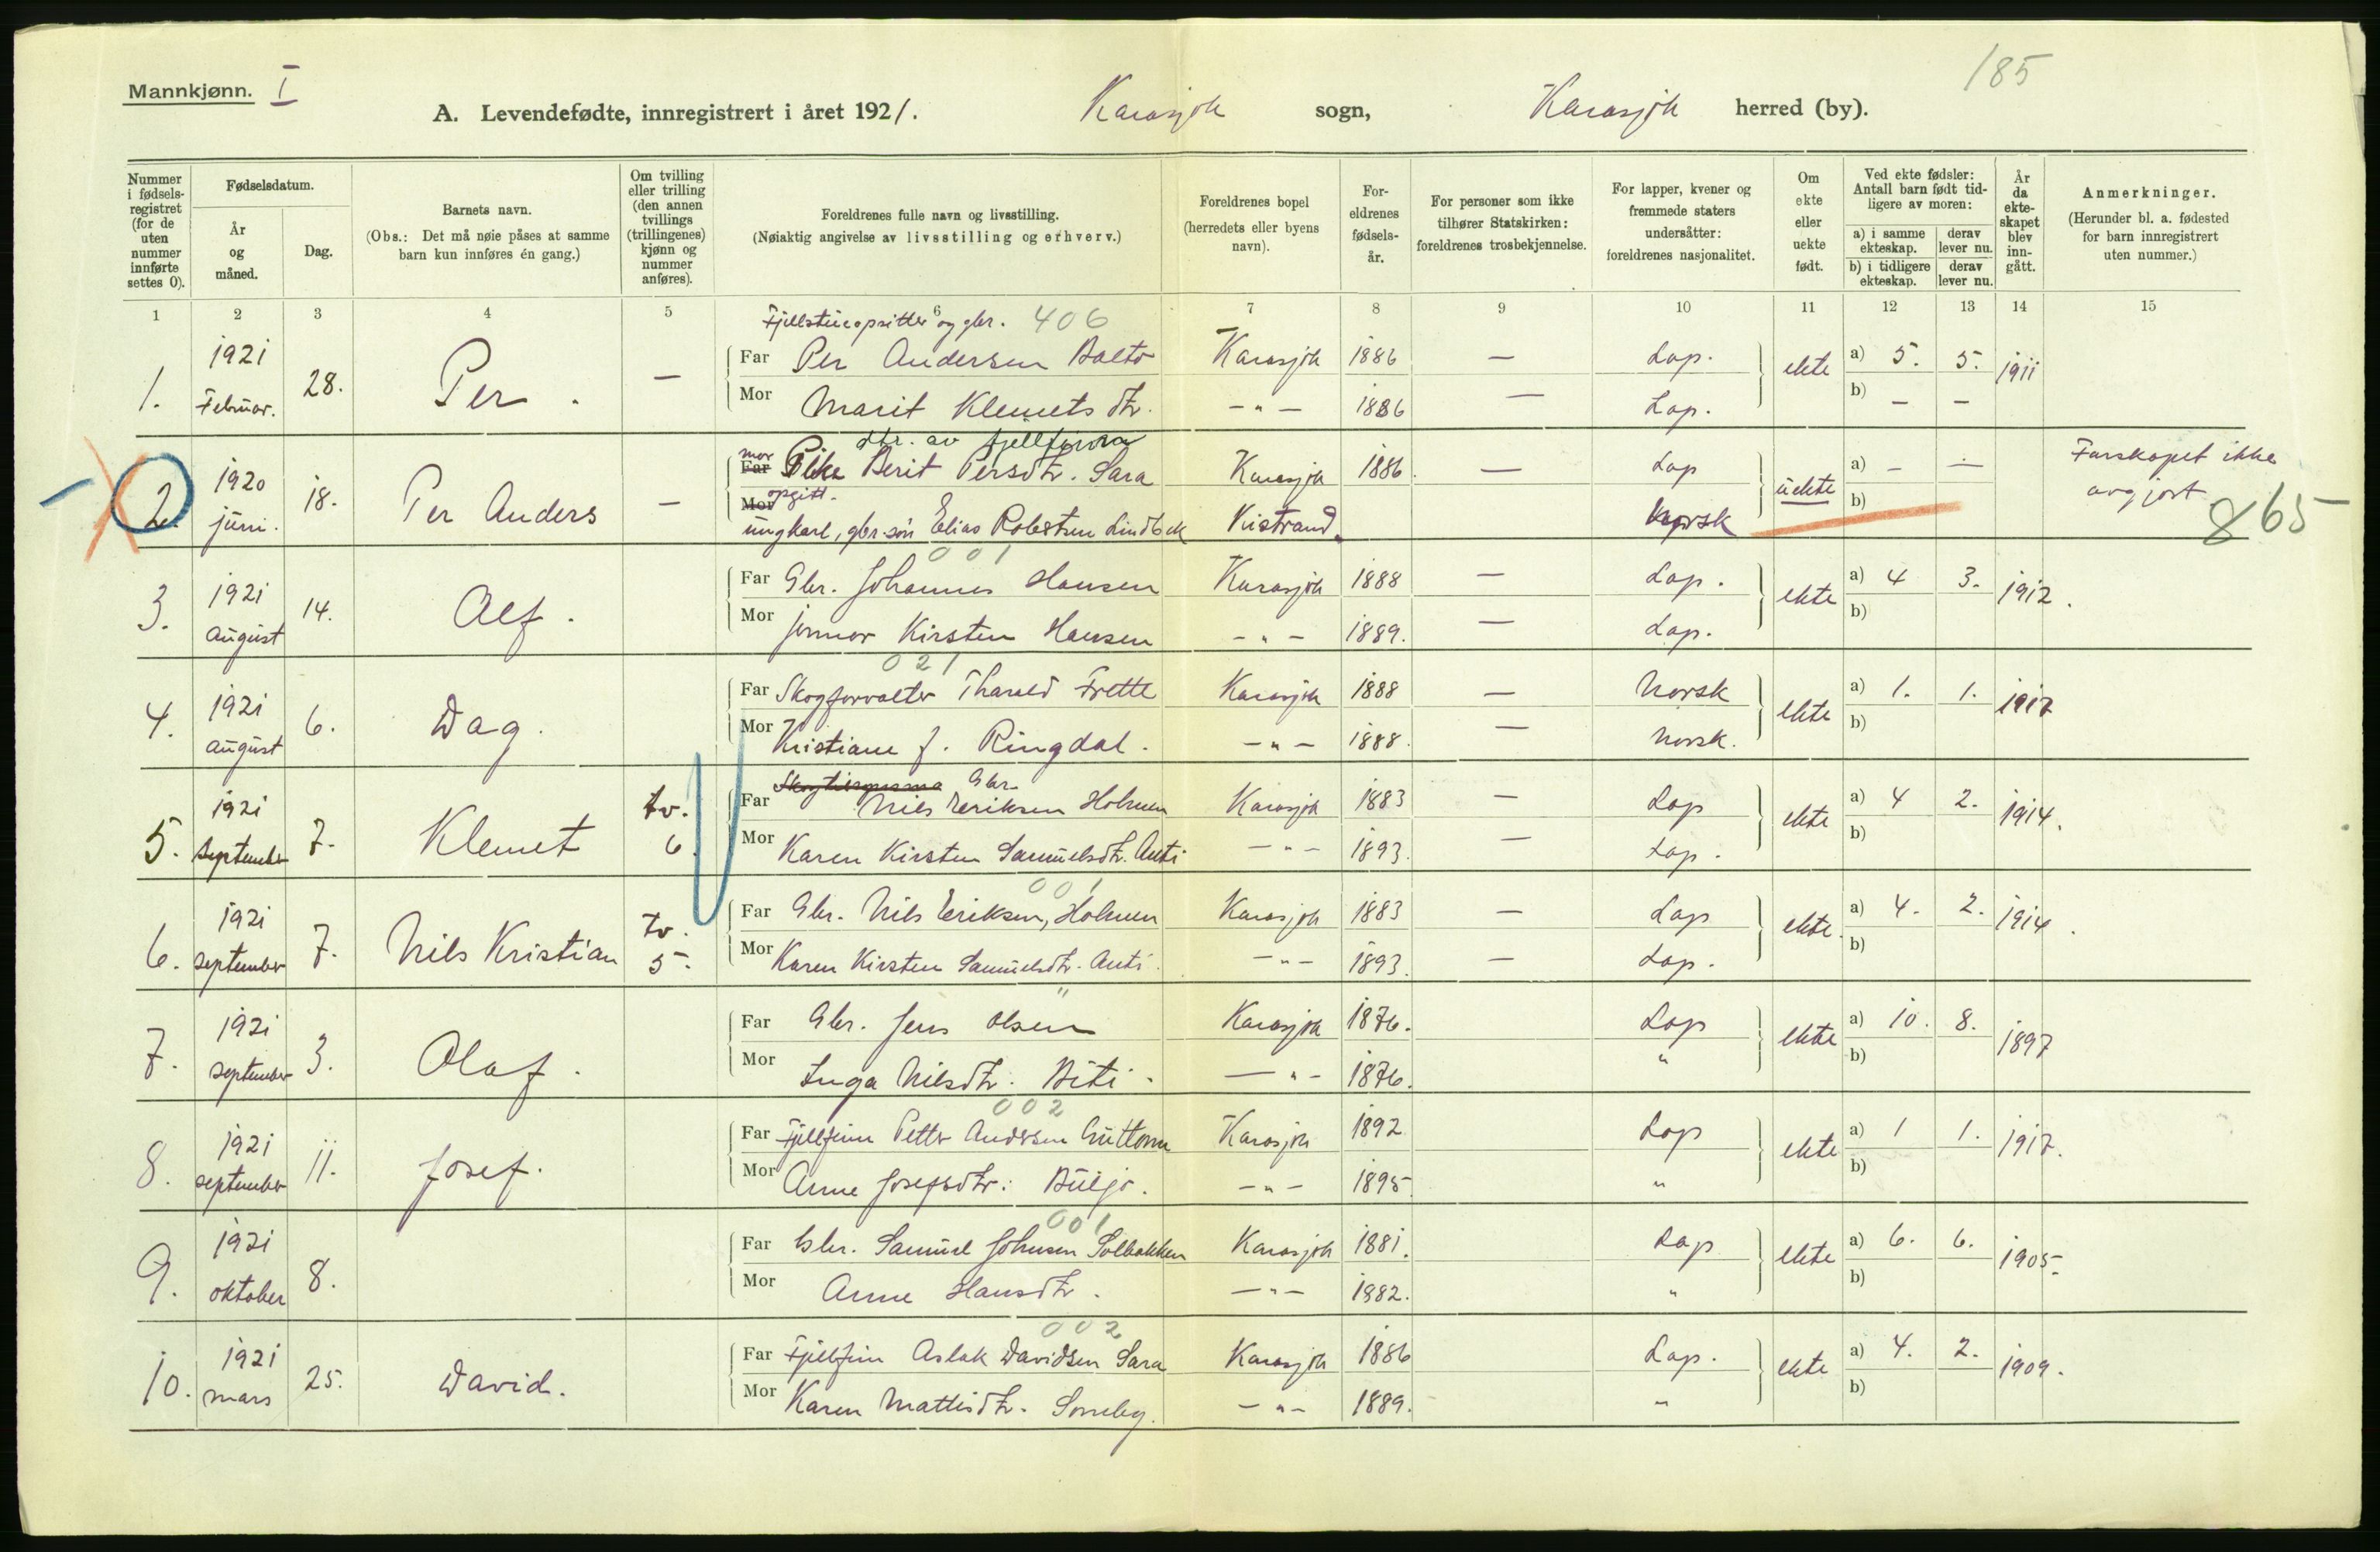 185
Mannkjønn. I
A. Levendefødte, innregistrert i året 1921. Karasjok sogn, Karasjok herred (by).
Nummer i fødselsregistret (for de uten nummer innførte settes 0).
Fødselsdatum.
År og måned.
Dag.
Barnets navn.
(Obs.: Det må nøie påses at samme barn kun innføres én gang.)
Om tvilling eller trilling (den annen tvillings (trillingenes) kjønn og nummer anføres).
Foreldrenes fulle navn og livsstilling.
(Nøiaktig angivelse av livsstilling og erhverv.)
Foreldrenes bopel (herredets eller byens navn).
Foreldrenes fødselsår.
For personer som ikke tilhører Statskirken: foreldrenes trosbekjennelse.
For lapper, kvener og fremmede staters undersåtter: foreldrenes nasjonalitet.
Om ekte eller uekte født.
Ved ekte fødsler: Antall barn født tidligere av moren:
a) i samme ekteskap. derav lever nu.
b) i tidligere ekteskap. derav lever nu.
År da ekteskapet blev inngått.
Anmerkninger.
(Herunder bl. a. fødested for barn innregistrert uten nummer.)
1 2 3 4 5 6 7 8 9 10 11 12 13 14 15
Fjellstueopsitter og gbr. 406
1. 1921 Februar. 28. Per. — Far Per Andersen Balto Karasjok 1886 — Lap. ekte a) 5. 5. 1911
Mor Marit Klemetsdtr. -"- 1886 — Lap. b) — —
dtr. av fjellfinn
2. 1920 juni. 18. Per Anders — Far mor Pike Berit Persdtr. Sara Karasjok 1886 — Lap uekte a) — — Farskapet ikke avgjort 865
Mor opgitt. ungkarl, gbr.søn Elias Robertsen Lindbck Kistrand. Norsk b)
001
3. 1921 august 14. Alf. Far Gbr. Johannes Hansen Karasjok 1888 — Lap. ekte a) 4 3. 1912.
Mor Kirsten Hansen -"- 1889. — Lap. b)
021
4. 1921 august 6. Dag. Far Skogforvalter Tharald Frette Karasjok 1888 — Norsk ekte a) 1. 1. 1917
Mor Kristiane J. Ringdal. -"- 1888. — Norsk. b)
Gbr.
5. 1921 september 7. Klemet tv. 6. Far Nils Eriksen Holmen Karasjok 1883 — Lap ekte a) 4 2. 1914.
Mor Karen Kirsten Samuelsdtr. Anti -"- 1893. — Lap. b)
001
6. 1921 september 7. Nils Kristian tv. 5. Far Gbr. Nils Eriksen, Holmen Karasjok 1883 — Lap ekte. a) 4. 2. 1914.
Mor Karen Kirsten Samuelsdtr. Anti. -"- 1893. — Lap. b)
"
7. 1921 september 3. Olaf. Far Gbr. Jens Olsen Karasjok 1876. Lap ekte a) 10. 8. 1897
Mor Inga Nilsdtr. Biti. -"- 1876. " b)
002
8. 1921 september 11. Josef. Far Fjellfinn Petter Andersen Guttorm Karasjok 1892 Lap ekte a) 1 1. 1917.
Mor Anne Josefsdtr. Buljo. -"- 1895 " b)
001
9. 1921 oktober 8. Far Gbr. Samuel Johnsen Solbakken Karasjok 1881. Lap ekte a) 6. 6. 1905.
Mor Anne Hansdtr. -"- 1882. " b)
002
10. 1921 mars 25. David. Far Fjellfinn Aslak Davidsen Sara Karasjok 1886 Lap. ekte a) 4. 2. 1909.
Mor Karen Mattisdtr. Somby. -"- 1889. " b)